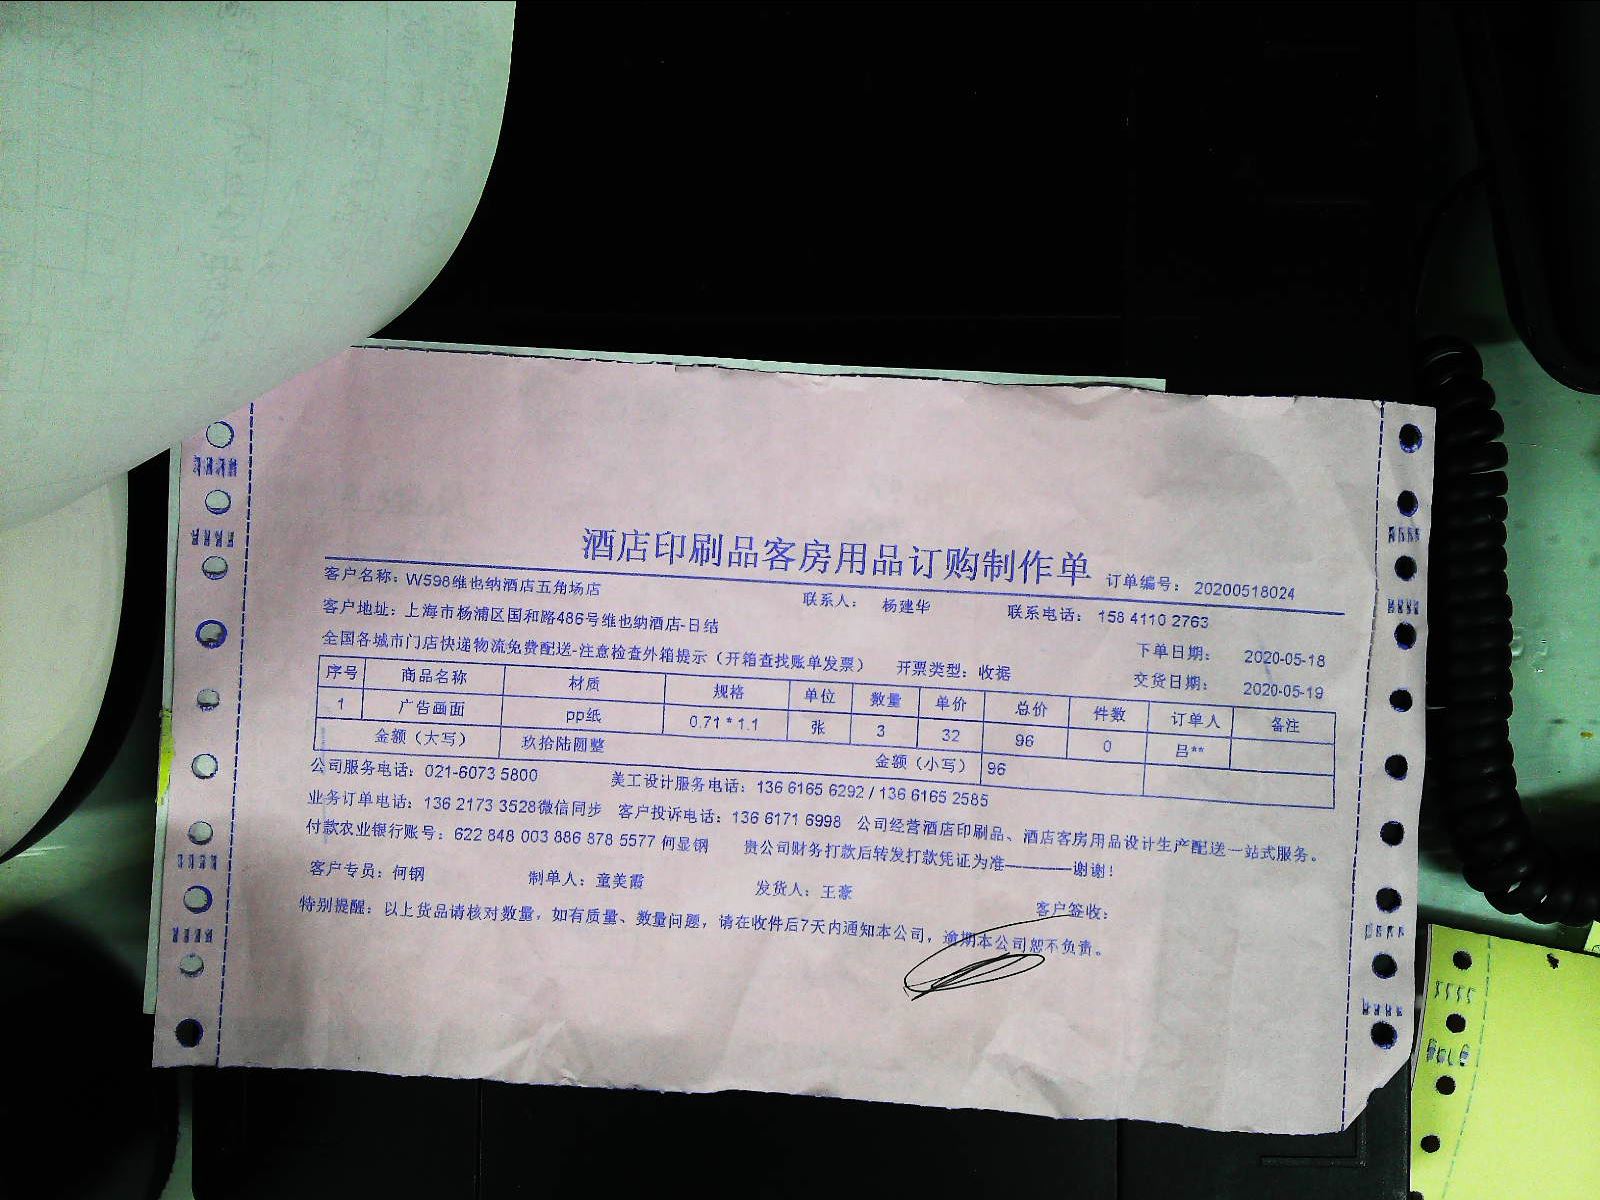 酒店印刷品客房用品订购制作单 订单编号： 20200518024
客户名称：W598维也纳酒店五角场店 联系人： 杨建华 联系电话： 158 4110 2763
客户地址：上海市杨浦区国和路486号维也纳酒店-日结 下单日期： 2020-05-18
全国各城市门店快递物流免费配送-注意检查外箱提示（开箱查找账单发票） 开票类型：收据 交货日期： 2020-05-19
序号 商品名称 材质 规格 单位 数量 单价 总价 件数 订单人 备注
1 广告画面 pp纸 0.71*1.1 张 3 32 96 0 吕**
金额（大写） 玖拾陆圆整 金额（小写） 96
公司服务电话：021-6073 5800 美工设计服务电话：136 6165 6292 / 136 6165 2585
业务订单电话：136 2173 3528微信同步 客户投诉电话：136 6171 6998 公司经营酒店印刷品、酒店客房用品设计生产配送一站式服务。
付款农业银行账号：622 848 003 886 878 5577 何显钢 贵公司财务打款后转发打款凭证为准————谢谢！
客户专员：何钢 制单人：童美霞 发货人：王豪 客户签收：
特别提醒：以上货品请核对数量，如有质量、数量问题，请在收件后7天内通知本公司，逾期本公司恕不负责。